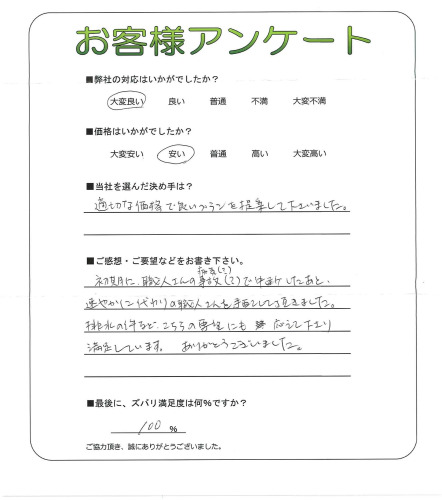 お客様アンケート
■弊社の対応はいかがでしたか？
大変良い 良い 普通 不満 大変不満
■価格はいかがでしたか？
大変安い 安い 普通 高い 大変高い
■当社を選んだ決め手は？
適切な価格で良いプランを提案して下さいました。
■ご感想・ご要望などをお書き下さい。
初期に、職人さんの事故(?)で中断したあと、
速やかに代わりの職人さんを手配して頂きました。
排水の件など、こちらの要望にも 応えて下さり
満足しています。 ありがとうございました。
■最後に、ズバリ満足度は何％ですか？
100 %
ご協力頂き、誠にありがとうございました。